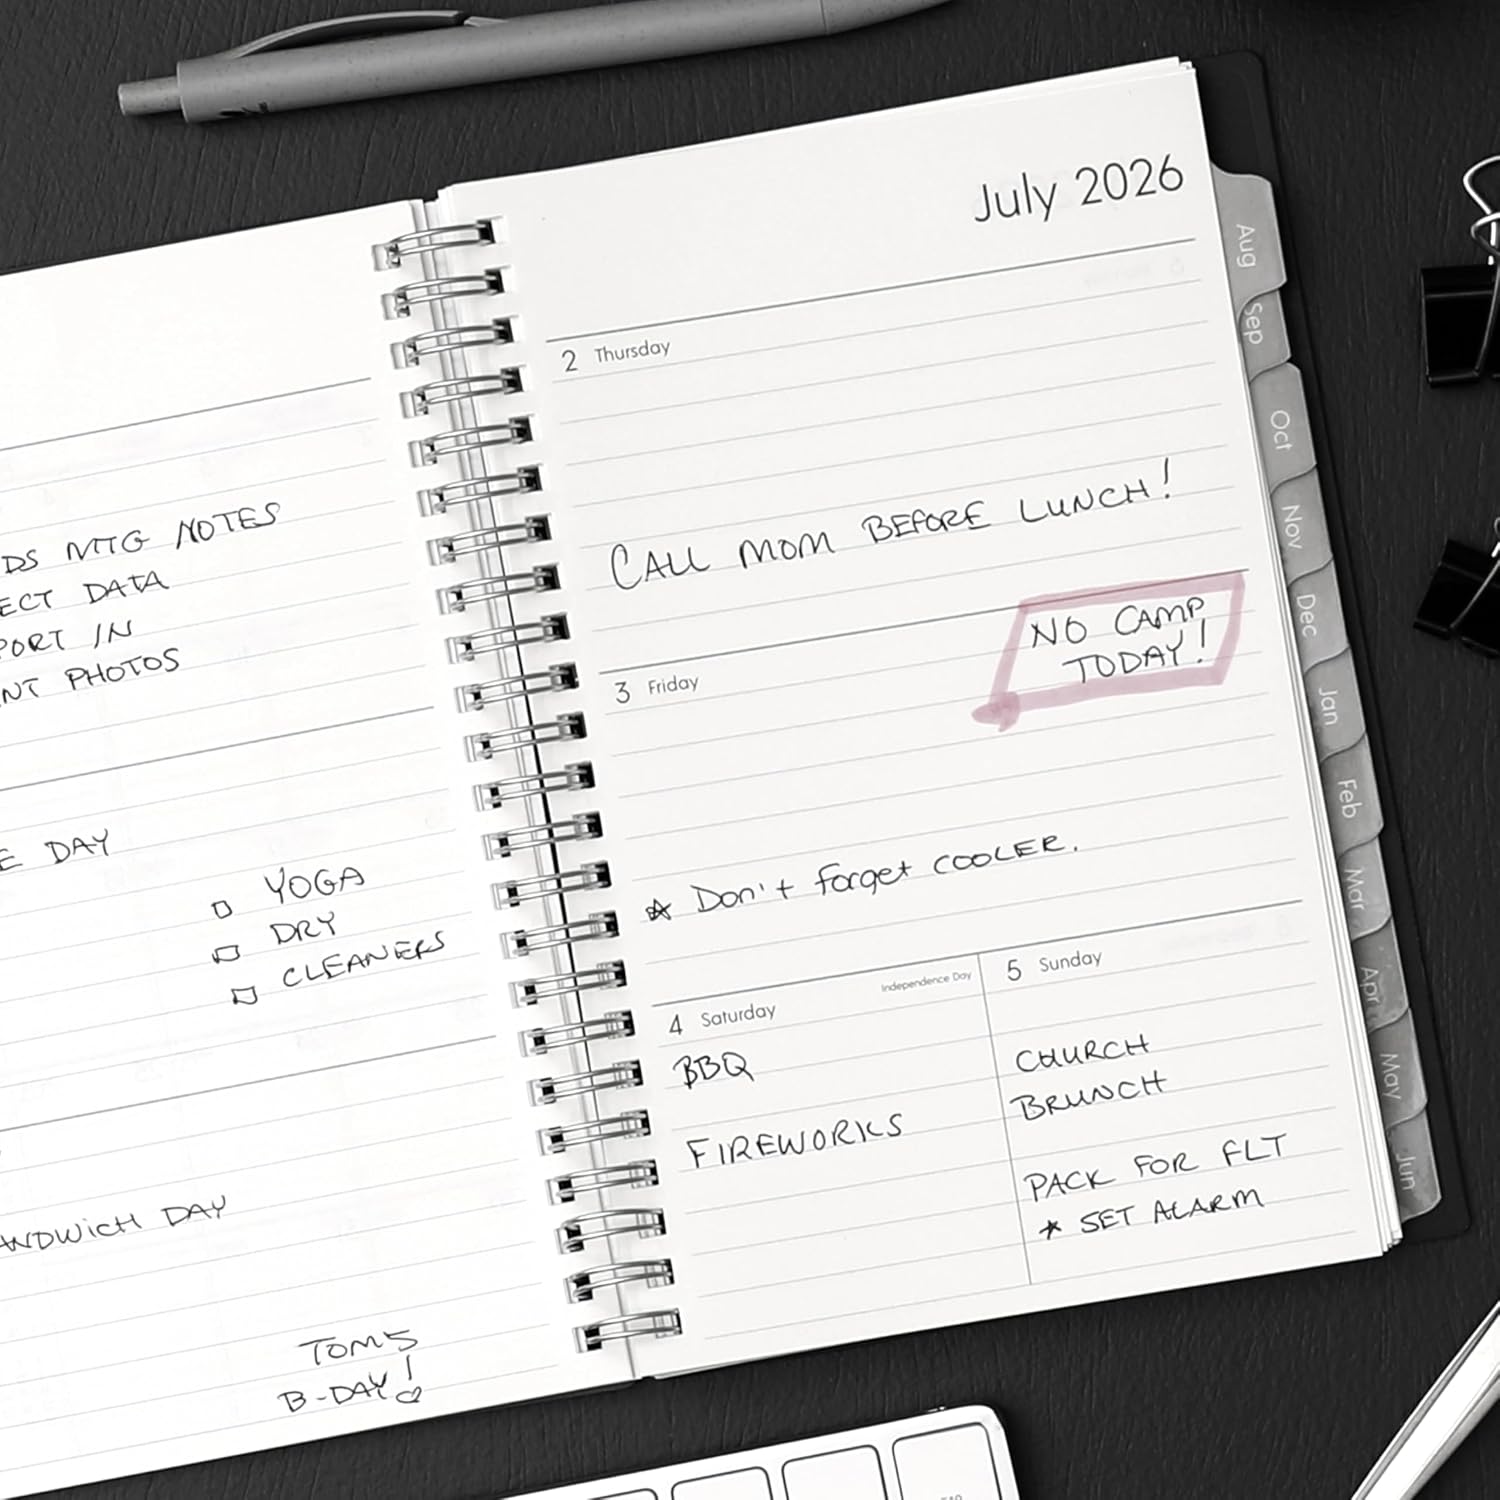 DS MTG NOTES
ECT DATA
PORT IN
NT PHOTOS
E DAY
YOGA
DRY
CLEANERS
ANDWICH DAY
TOMS
B-DAY!
July 2026
2 Thursday
CALL MOM BEFORE LUNCH!
3 Friday
NO CAMP
TODAY!
☆ Don't forget COOLER.
4 Saturday Independence Day
BBQ
FIREWORKS
5 Sunday
CHURCH
BRUNCH
PACK FOR FLT
* SET ALARM
Aug
Sep
Oct
Nov
Dec
Jan
Feb
Mar
Apr
May
Jun